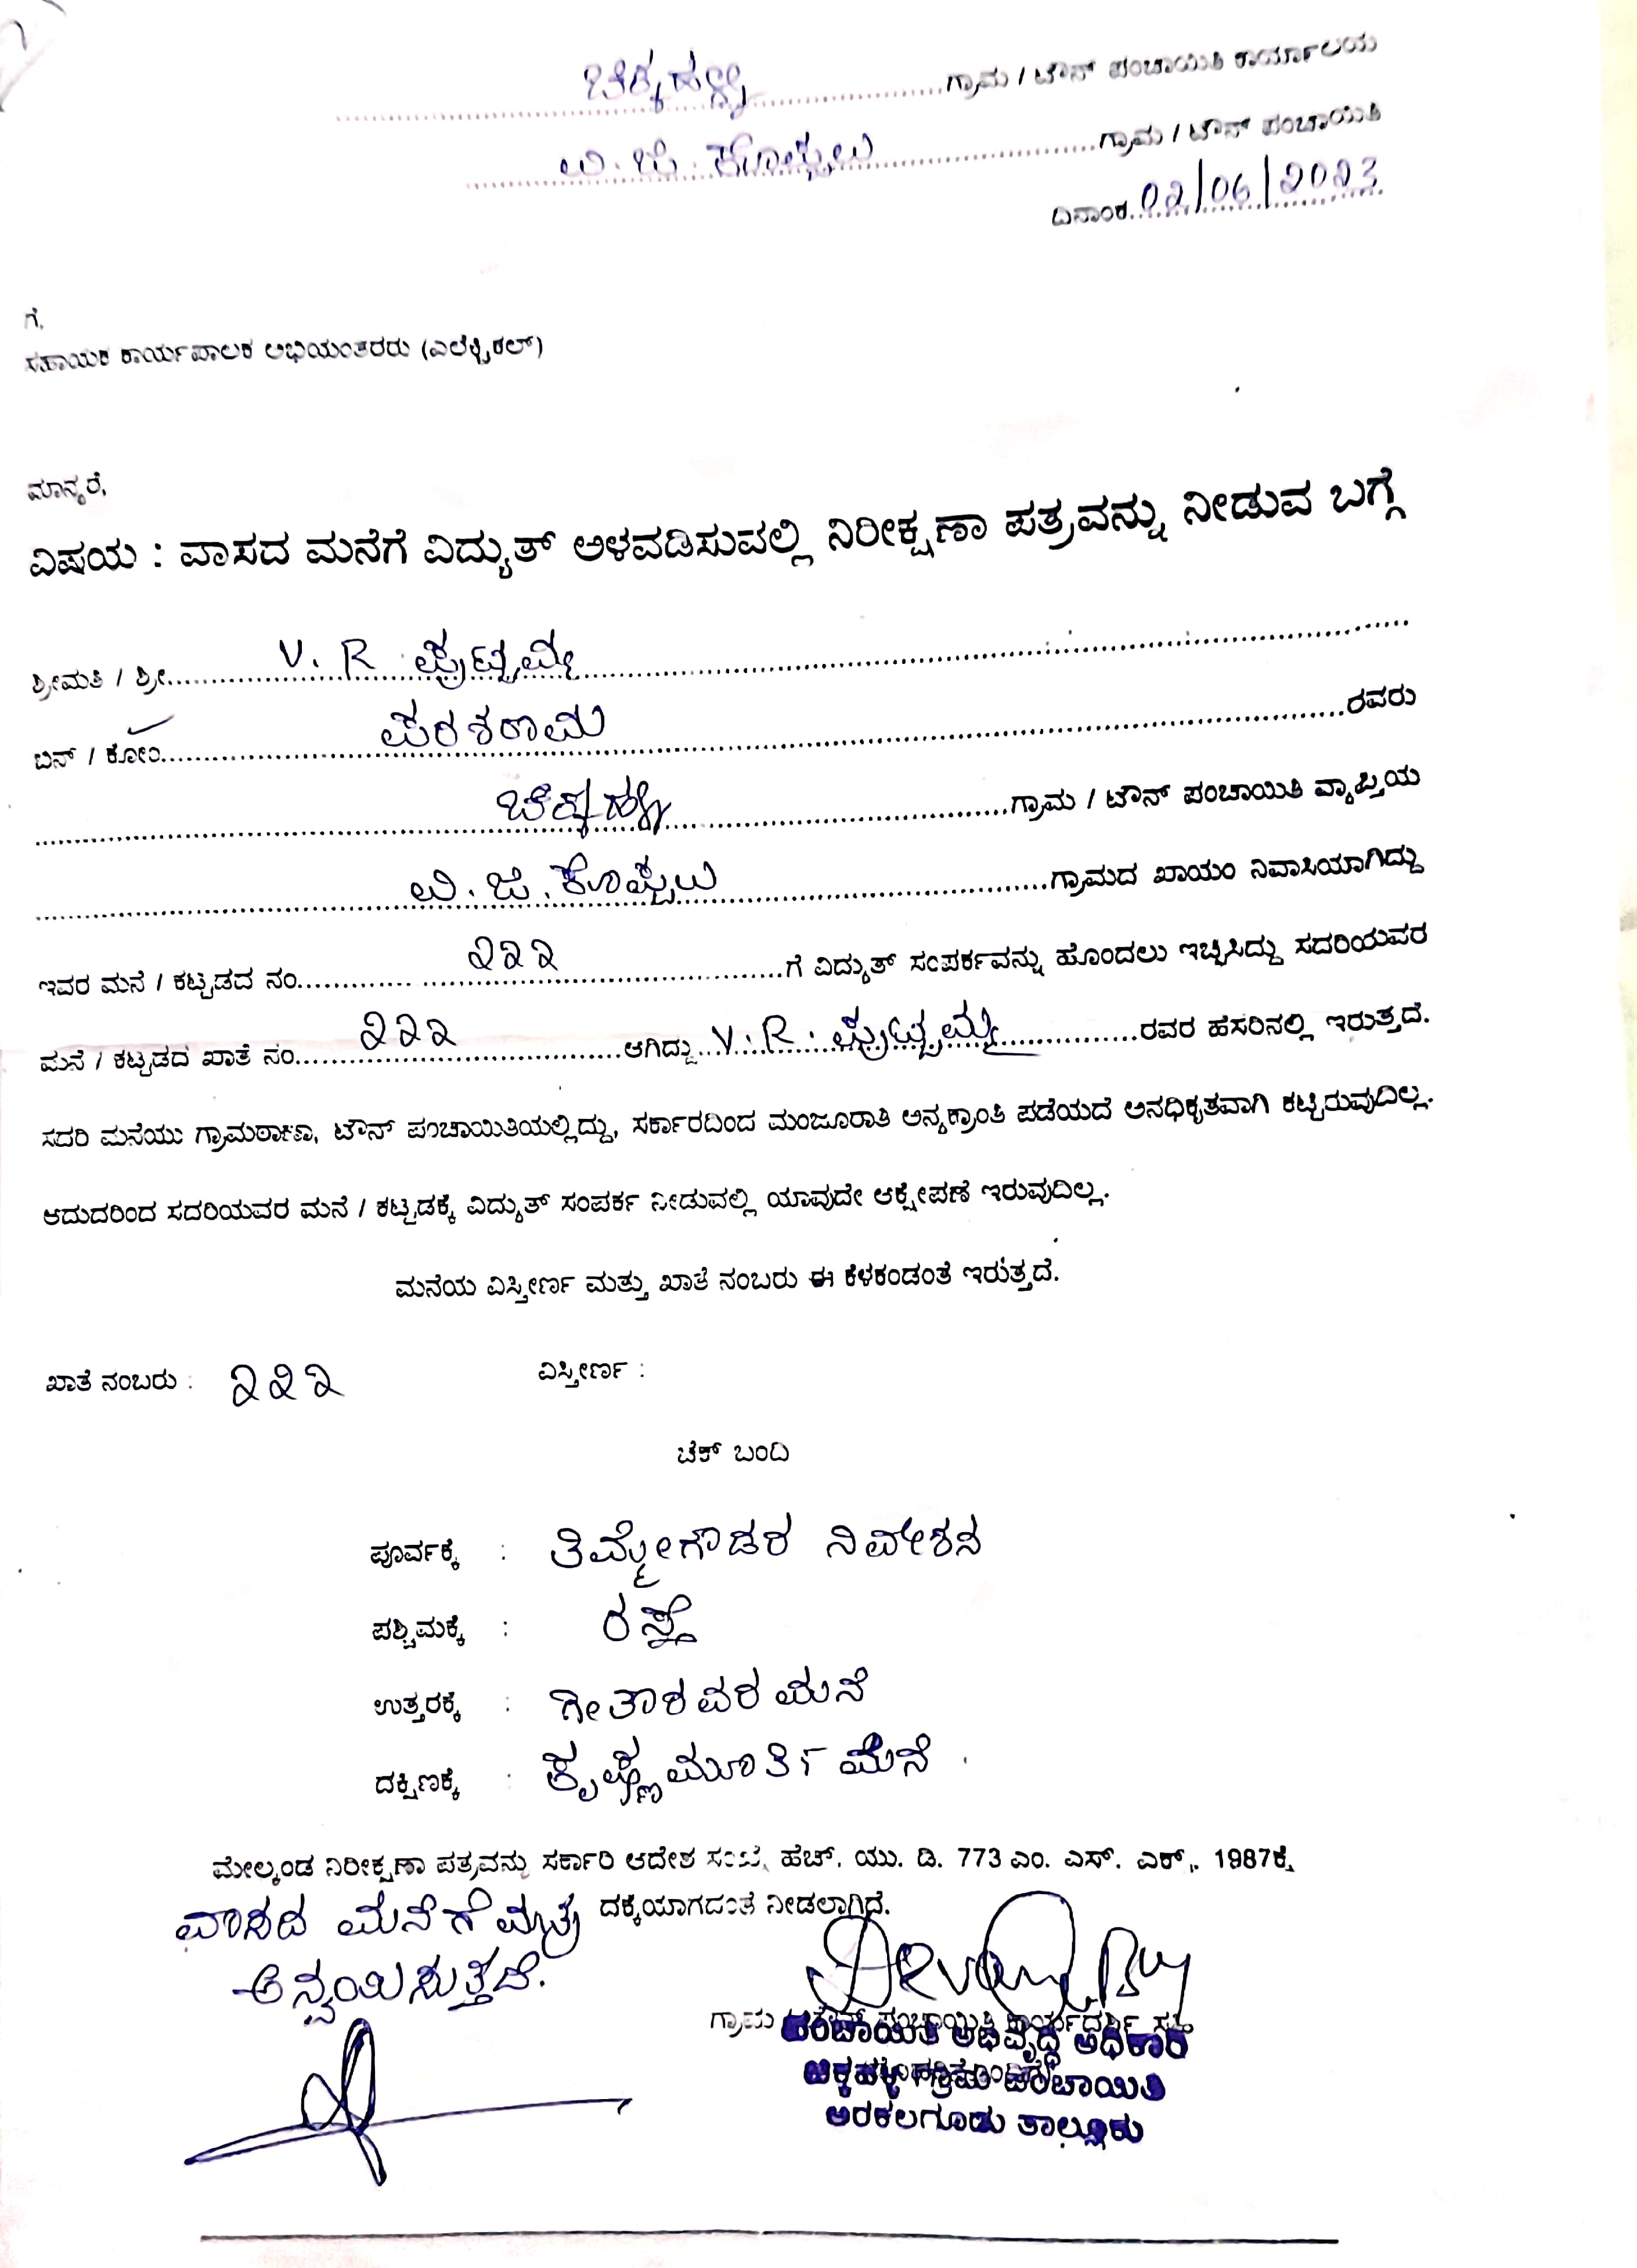 ಚಿಕ್ಕಹಳ್ಳಿ ಗ್ರಾಮ / ಟೌನ್ ಪಂಚಾಯಿತಿ ಕಾರ್ಯಾಲಯ
ಲ. ಜಿ. ಕೊಪ್ಪಲು ಗ್ರಾಮ / ಟೌನ್ ಪಂಚಾಯಿತಿ
ದಿನಾಂಕ 02/06/2023
ಗೆ,
ಸಹಾಯಕ ಕಾರ್ಯಪಾಲಕ ಅಭಿಯಂತರರು (ಎಲೆಕ್ಟ್ರಿಕಲ್)
ಮಾನ್ಯರೆ,
ವಿಷಯ : ವಾಸದ ಮನೆಗೆ ವಿದ್ಯುತ್ ಅಳವಡಿಸುವಲ್ಲಿ ನಿರೀಕ್ಷಣಾ ಪತ್ರವನ್ನು ನೀಡುವ ಬಗ್ಗೆ
ಶ್ರೀಮತಿ / ಶ್ರೀ V. R ಪುಟ್ಟಮ್ಮ
ಬಿನ್ / ಕೋಂ ಪರಶರಾಮ ರವರು
ಚಿಕ್ಕಹಳ್ಳಿ ಗ್ರಾಮ / ಟೌನ್ ಪಂಚಾಯಿತಿ ವ್ಯಾಪ್ತಿಯ
ಲ. ಜಿ. ಕೊಪ್ಪಲು ಗ್ರಾಮದ ಖಾಯಂ ನಿವಾಸಿಯಾಗಿದ್ದು
ಇವರ ಮನೆ / ಕಟ್ಟಡದ ನಂ ೨೨೨ ಗೆ ವಿದ್ಯುತ್ ಸಂಪರ್ಕವನ್ನು ಹೊಂದಲು ಇಚ್ಛಿಸಿದ್ದು ಸದರಿಯವರ
ಮನೆ / ಕಟ್ಟಡದ ಖಾತೆ ನಂ ೨೨೨ ಆಗಿದ್ದು V. R. ಪುಟ್ಟಮ್ಮ ರವರ ಹೆಸರಿನಲ್ಲಿ ಇರುತ್ತದೆ.
ಸದರಿ ಮನೆಯು ಗ್ರಾಮಠಾಣಾ, ಟೌನ್ ಪಂಚಾಯಿತಿಯಲ್ಲಿದ್ದು, ಸರ್ಕಾರದಿಂದ ಮಂಜೂರಾತಿ ಅನ್ಯಕ್ರಾಂತಿ ಪಡೆಯದೆ ಅನಧಿಕೃತವಾಗಿ ಕಟ್ಟಿರುವುದಿಲ್ಲ.
ಆದುದರಿಂದ ಸದರಿಯವರ ಮನೆ / ಕಟ್ಟಡಕ್ಕೆ ವಿದ್ಯುತ್ ಸಂಪರ್ಕ ನೀಡುವಲ್ಲಿ ಯಾವುದೇ ಆಕ್ಷೇಪಣೆ ಇರುವುದಿಲ್ಲ.
ಮನೆಯ ವಿಸ್ತೀರ್ಣ ಮತ್ತು ಖಾತೆ ನಂಬರು ಈ ಕೆಳಕಂಡಂತೆ ಇರುತ್ತದೆ.
ಖಾತೆ ನಂಬರು : ೨೨೨ ವಿಸ್ತೀರ್ಣ :
ಚೆಕ್ ಬಂದಿ
ಪೂರ್ವಕ್ಕೆ : ತಿಮ್ಮೇಗೌಡರ ನಿವೇಶನ
ಪಶ್ಚಿಮಕ್ಕೆ : ರಸ್ತೆ
ಉತ್ತರಕ್ಕೆ : ಗೀತಾರವರ ಮನೆ
ದಕ್ಷಿಣಕ್ಕೆ : ಕೃಷ್ಣಮೂರ್ತಿ ಮನೆ
ಮೇಲ್ಕಂಡ ನಿರೀಕ್ಷಣಾ ಪತ್ರವನ್ನು ಸರ್ಕಾರಿ ಆದೇಶ ಸಂಖ್ಯೆ ಹೆಚ್. ಯು. ಡಿ. 773 ಎಂ. ಎಸ್. ಎಕ್. 1987ಕ್ಕೆ
ದಕ್ಕೆಯಾಗದಂತೆ ನೀಡಲಾಗಿದೆ.
ವಾಸದ ಮನೆಗೆ ಮಾತ್ರ
ಅನ್ವಯಿಸುತ್ತದೆ.
ಪಂಚಾಯಿತಿ ಅಭಿವೃದ್ಧಿ ಅಧಿಕಾರಿ
ಚಿಕ್ಕಹಳ್ಳಿ ಗ್ರಾಮ ಪಂಚಾಯಿತಿ
ಅರಕಲಗೂಡು ತಾಲ್ಲೂಕು